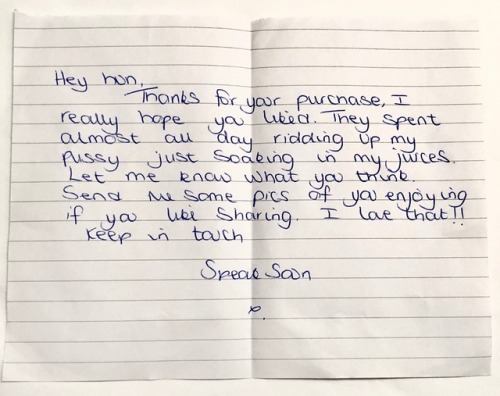 Hey hun,
Thanks for your purchase, I
really hope you liked. They spent
almost all day ridding up my
pussy just soaking in my juices.
Let me know what you think.
Send me some pics of you enjoying
if you like sharing. I love that!!
Keep in touch
Speak Soon
x.